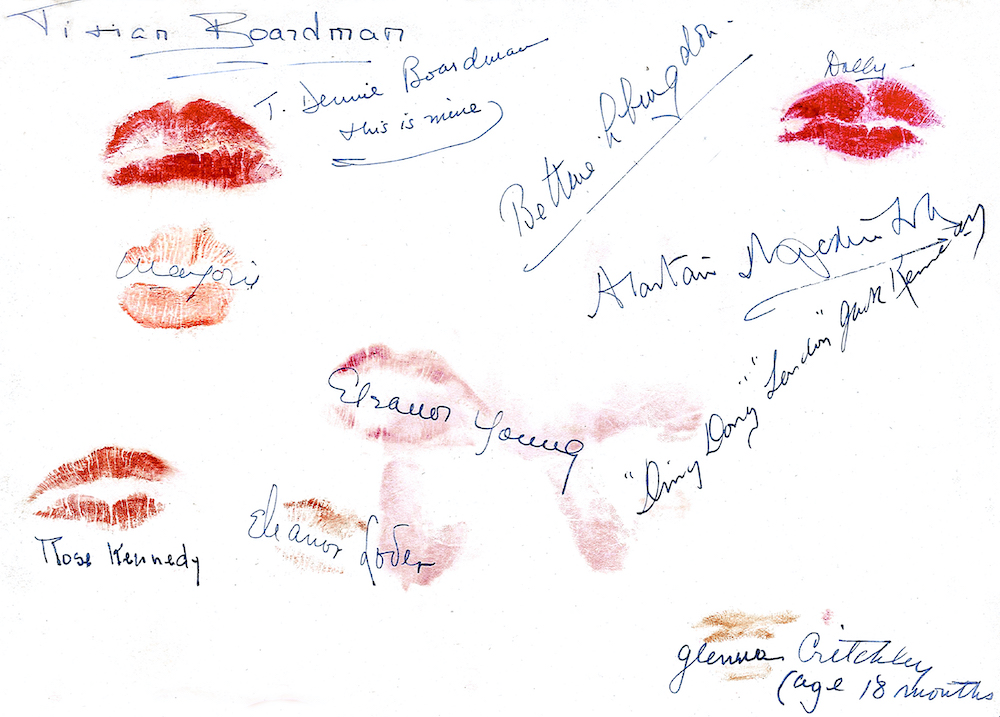 Titian Boardman
T. Dennie Boardman
this is mine
Bettine Abingdon.
Dolly
Marjorie
Alastair
Eleanor Young
"Ding Dong" "London" Jack Kennedy
Rose Kennedy
Eleanor Loder
glenna Critchley
(age 18 months